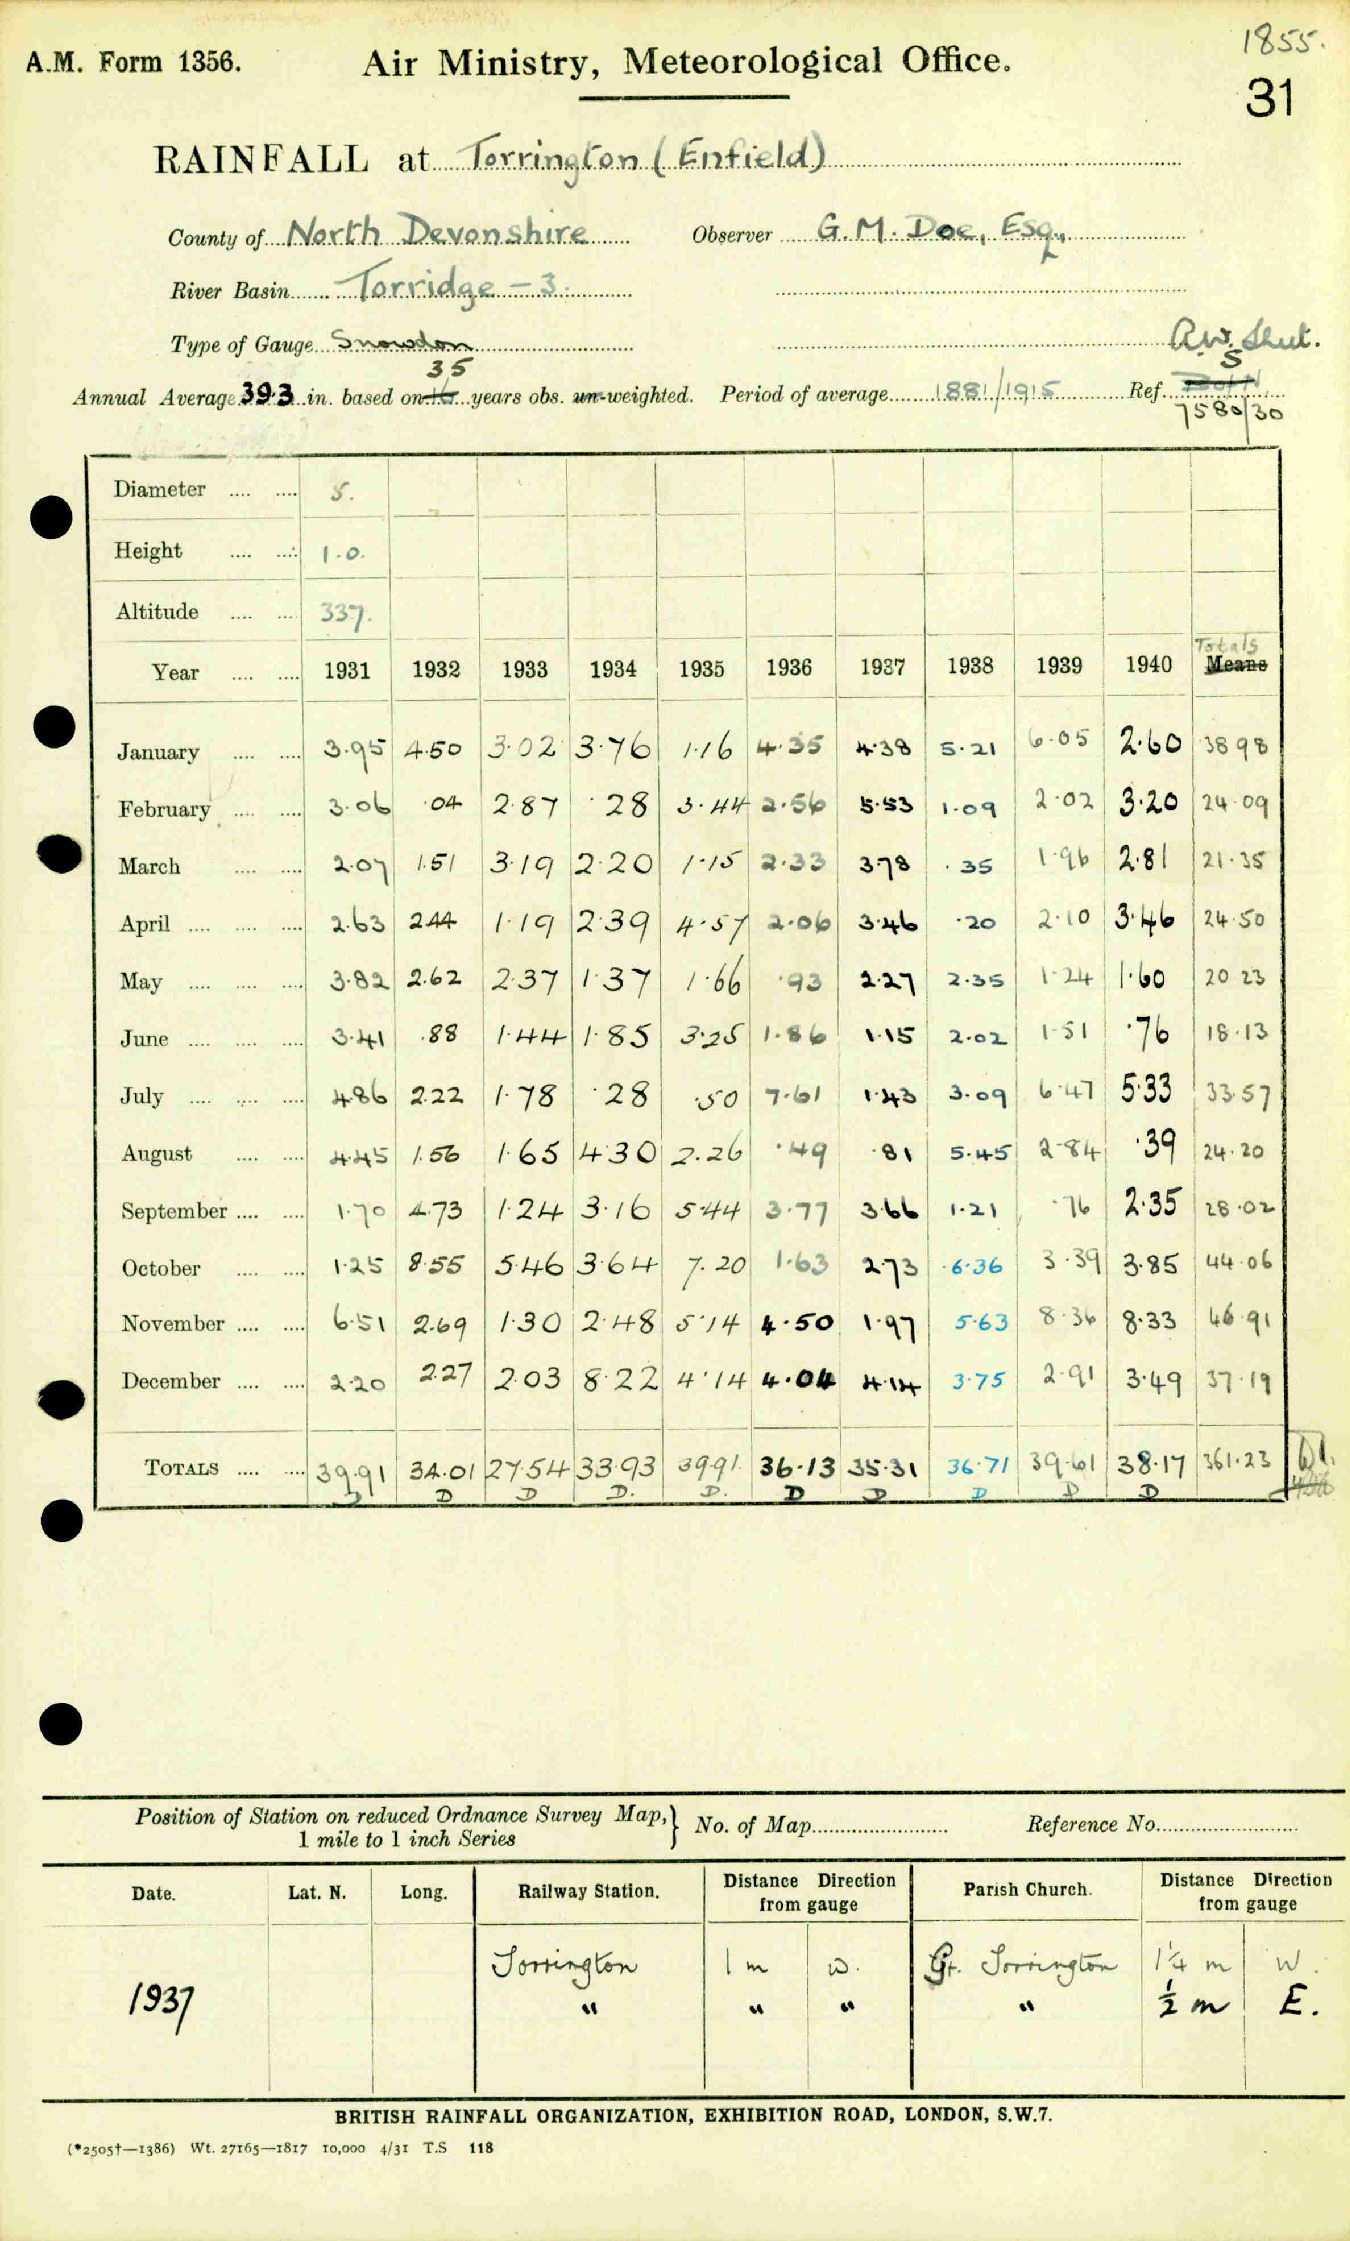 1855.
A.M. Form 1356. Air Ministry, Meteorological Office.
31
RAINFALL at Torrington (Enfield)
County of North Devonshire Observer G.M. Doe, Esq.,
River Basin Torridge - 3.
Type of Gauge Snowdon A.W. Shut.
35 S
Annual Average 39.3 in. based on 16 years obs. un-weighted. Period of average 1881/1915 Ref.
7580/30
Diameter .... .... 5.
Height .... .... 1.0.
Altitude .... .... 337.
Totals
Year .... .... 1931 1932 1933 1934 1935 1936 1937 1938 1939 1940 Means
January .... .... 3.95 4.50 3.02 3.76 1.16 4.35 4.38 5.21 6.05 2.60 38 98
February .... .... 3.06 .04 2.87 .28 3.44 2.56 5.53 1.09 2.02 3.20 24.09
March .... .... 2.07 1.51 3.19 2.20 1.15 2.33 3.78 .35 1.96 2.81 21.35
April .... .... .... 2.63 2.44 1.19 2.39 4.57 2.06 3.46 .20 2.10 3.46 24.50
May .... .... .... 3.82 2.62 2.37 1.37 1.66 .93 2.27 2.35 1.24 1.60 20 23
June .... .... .... 3.41 .88 1.44 1.85 3.25 1.86 1.15 2.02 1.51 .76 18.13
July .... .... .... 4.86 2.22 1.78 .28 .50 7.61 1.43 3.09 6.47 5.33 33.57
August .... .... 4.45 1.56 1.65 4.30 2.26 .49 .81 5.45 2.84 .39 24.20
September .... .... 1.70 4.73 1.24 3.16 5.44 3.77 3.66 1.21 .76 2.35 28.02
October .... .... 1.25 8.55 5.46 3.64 7.20 1.63 2.73 6.36 3.39 3.85 44.06
November .... .... 6.51 2.69 1.30 2.48 5.14 4.50 1.97 5.63 8.36 8.33 46.91
December .... .... 2.20 2.27 2.03 8.22 4.14 4.04 4.14 3.75 2.91 3.49 37.19
TOTALS .... .... 39.91 34.01 27.54 33.93 39.91 36.13 35.31 36.71 39.61 38.17 361.23
D D D D. D. D D D D D
Position of Station on reduced Ordnance Survey Map,} No. of Map Reference No.
1 mile to 1 inch Series
Date. Lat. N. Long. Railway Station. Distance Direction from gauge Parish Church. Distance Direction from gauge
Torrington 1 m W. Gt. Torrington 1¼ m W.
1937 " " " " ½ m E.
BRITISH RAINFALL ORGANIZATION, EXHIBITION ROAD, LONDON, S.W.7.
(*2505†—1386) Wt. 27165—1817 10,000 4/31 T.S 118